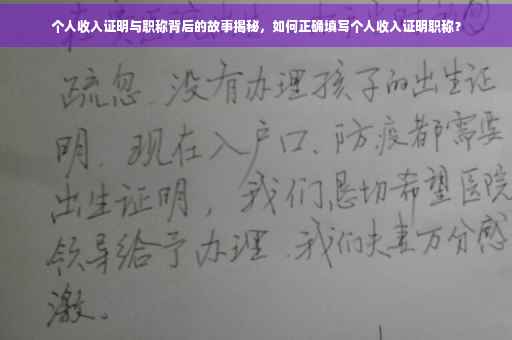 个人收入证明与职称背后的故事揭秘，如何正确填写个人收入证明职称？
疏忽、没有办理孩子的出生证
明、现在入户口、防疫都需要
出生证明，我们恳切希望医院
领导给予办理、我们夫妻万分感
激。